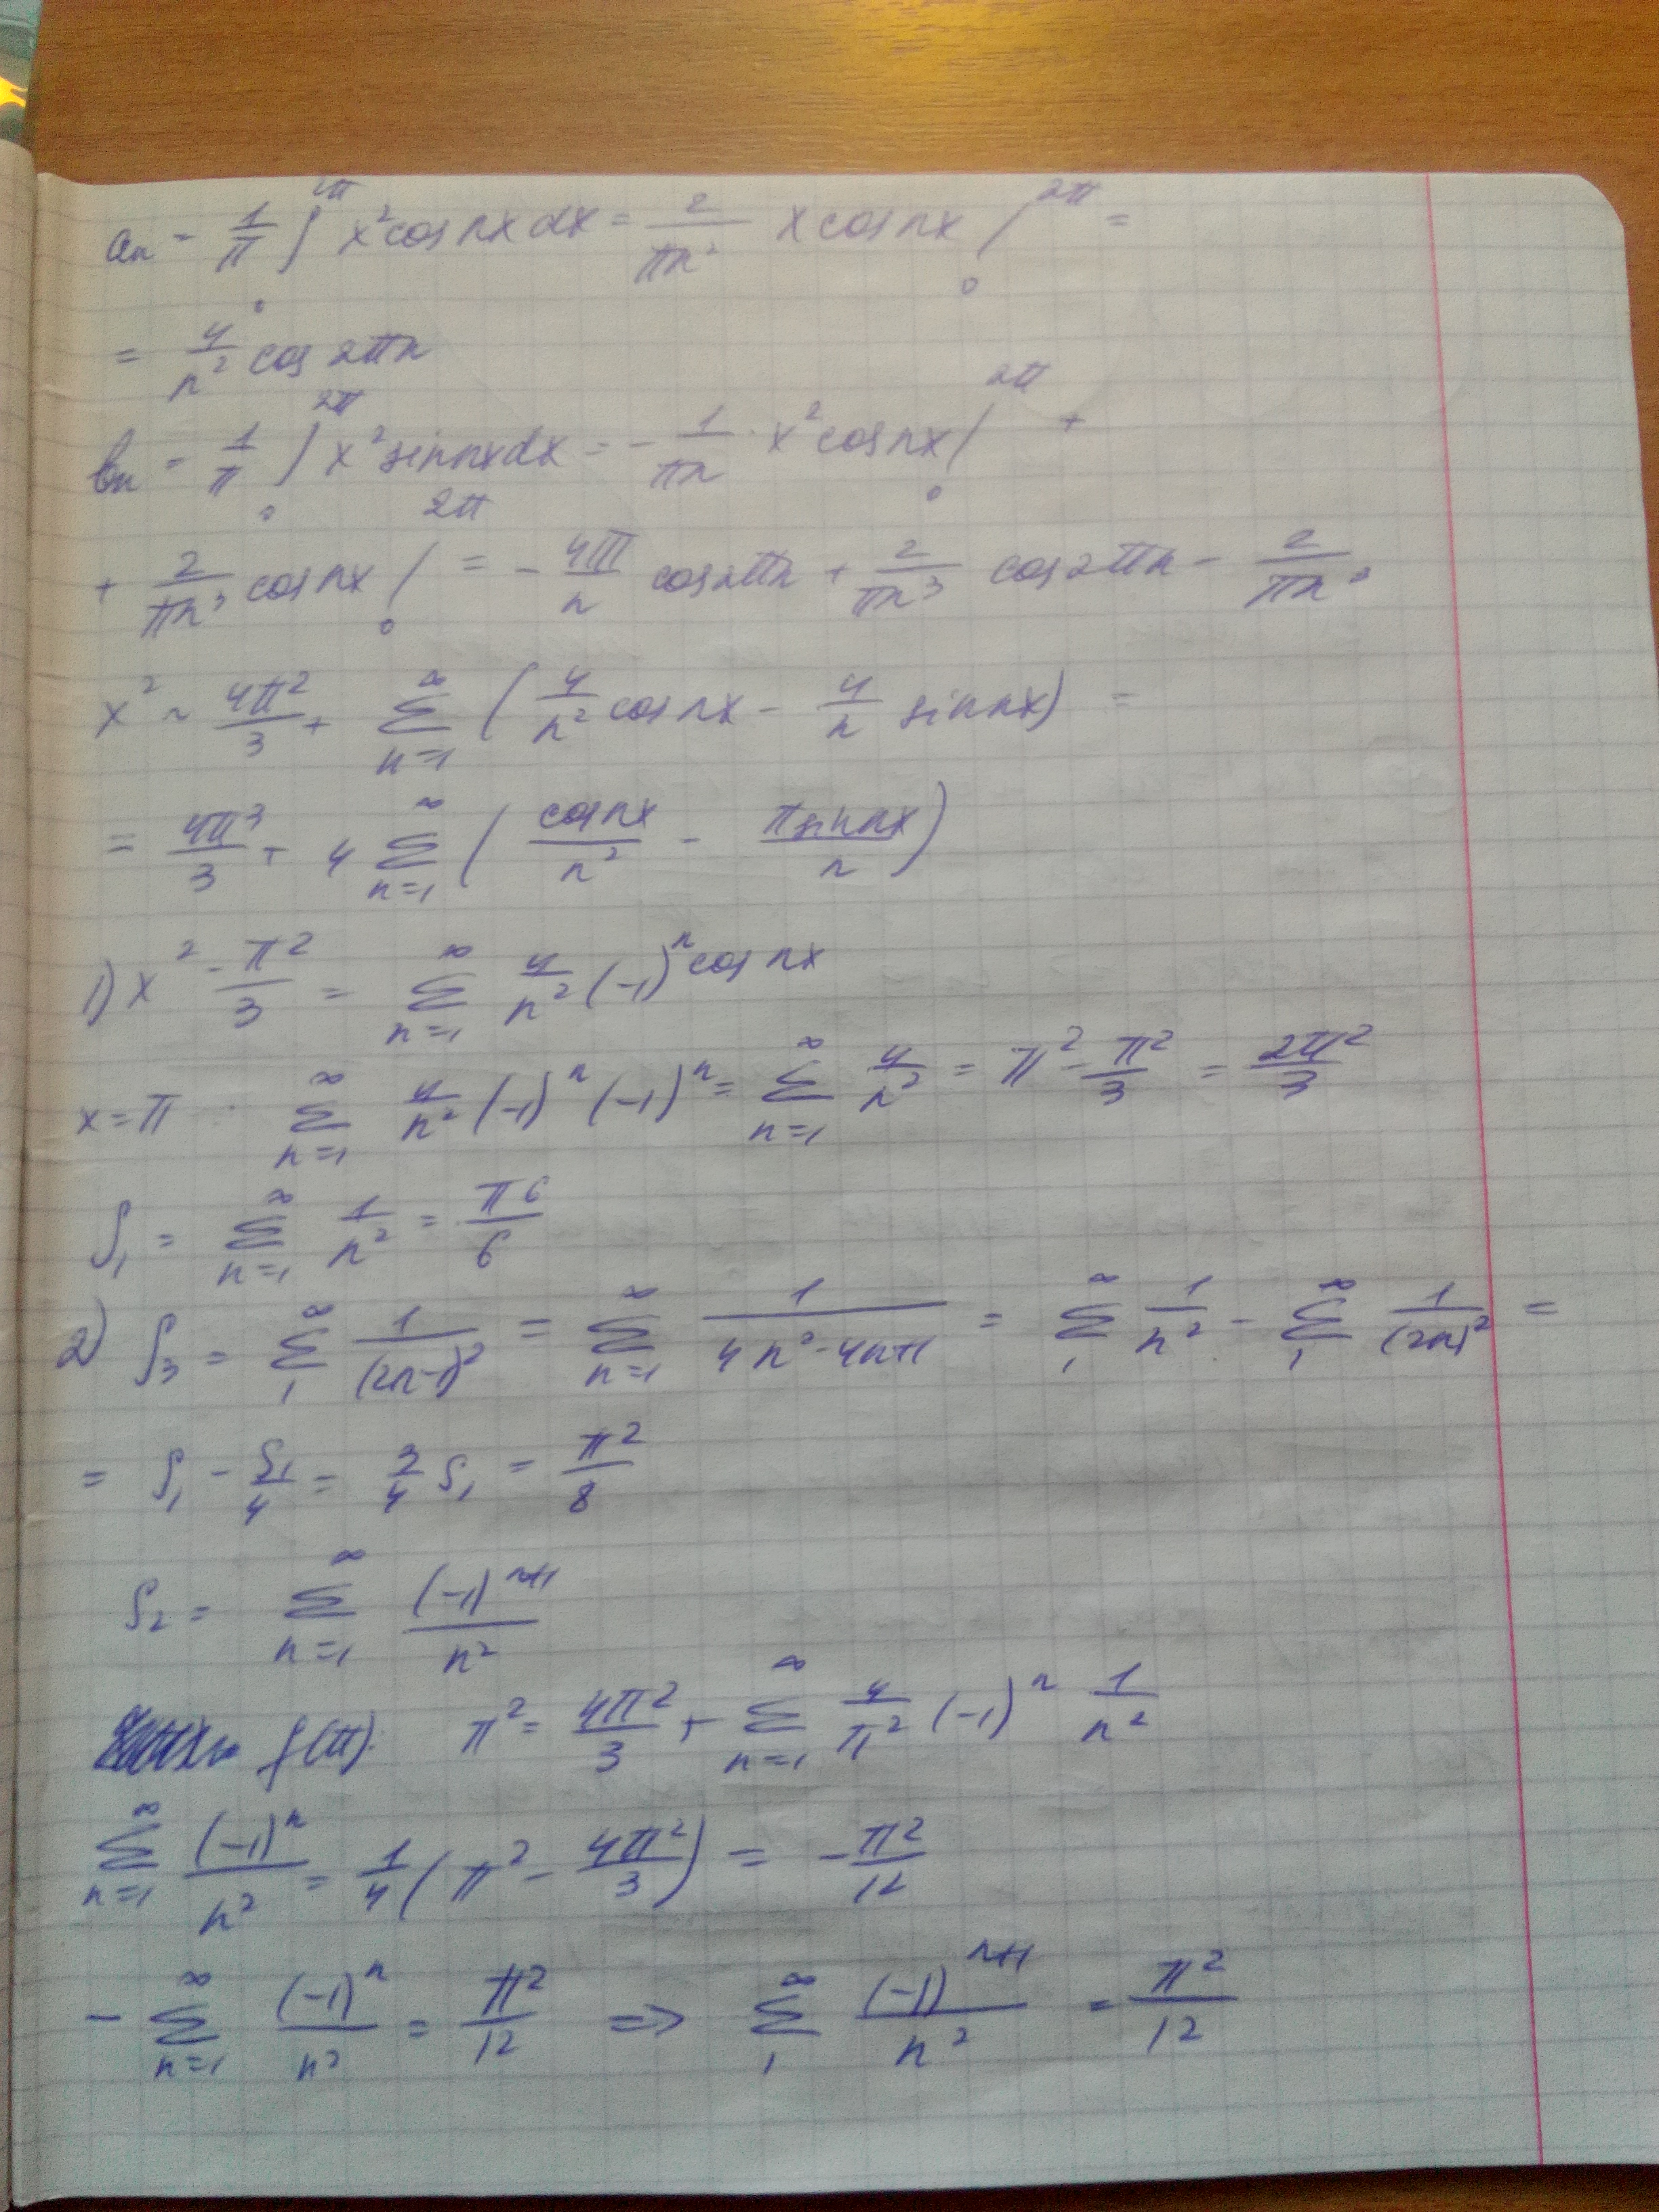 aₙ = 1/π ∫₀^2π x² cos nx dx = 2/(πn²) x cos nx |₀^2π =
= 4/n² cos 2πn
bₙ = 1/π ∫₀^2π x² sin nx dx = - 1/(πn) · x² cos nx |₀^2π +
+ 2/(πn³) cos nx |₀^2π = - 4π/n cos 2πn + 2/(πn³) cos 2πn - 2/(πn³)
x² ~ 4π²/3 + ∑_{n=1}^∞ (4/n² cos nx - 4/n sin nx) =
= 4π³/3 + 4 ∑_{n=1}^∞ (cos nx/n² - π sin nx/n)
1) x² - π²/3 = ∑_{n=1}^∞ 4/n² (-1)ⁿ cos nx
x = π ∑_{n=1}^∞ 4/n² (-1)ⁿ (-1)ⁿ = ∑_{n=1}^∞ 4/n² = π² - π²/3 = 2π²/3
S₁ = ∑_{n=1}^∞ 1/n² = π⁶/6
2) S₃ = ∑_1^∞ 1/(2n-1)² = ∑_{n=1}^∞ 1/(4n²-4n+1) = ∑_1^∞ 1/n² - ∑_1^∞ 1/(2n)² =
= S₁ - S₁/4 = 3/4 S₁ = π²/8
S₂ = ∑_{n=1}^∞ (-1)^{n+1}/n²
f(π) π² = 4π²/3 + ∑_{n=1}^∞ 4/π² (-1)ⁿ 1/n²
∑_{n=1}^∞ (-1)ⁿ/n² = 1/4 (π² - 4π²/3) = -π²/12
- ∑_{n=1}^∞ (-1)ⁿ/n² = π²/12 => ∑_1^∞ (-1)^{n+1}/n² = π²/12